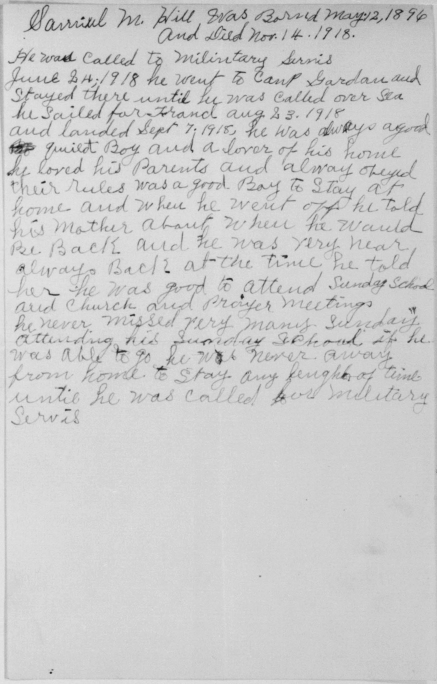 Samiul M. Hill, Was Bornd May 12, 1896
And Died Nov. 14. 1918.
He was Called to Milintary Servis
June 24. 1918 he went to Camp Gordan and
Stayed there until he was Called over Sea
he Sailed for Franc aug 23. 1918
and landed Sept 7. 1918, he was always a good
quiet Boy and a lover of his home
he loved his Parents and alway obeyed
their rules was a good Boy to Stay at
home and when he went off he told
his Mother about when he would
Be Back and he was very near
always Back at the time he told
her he was good to attend Sunday School
and Church and Prayer Meetings
he never missed very many Sunday
attending his Suonday School if he
was able to go he was never away
from home to Stay any lenght of time
until he was called military
Servis